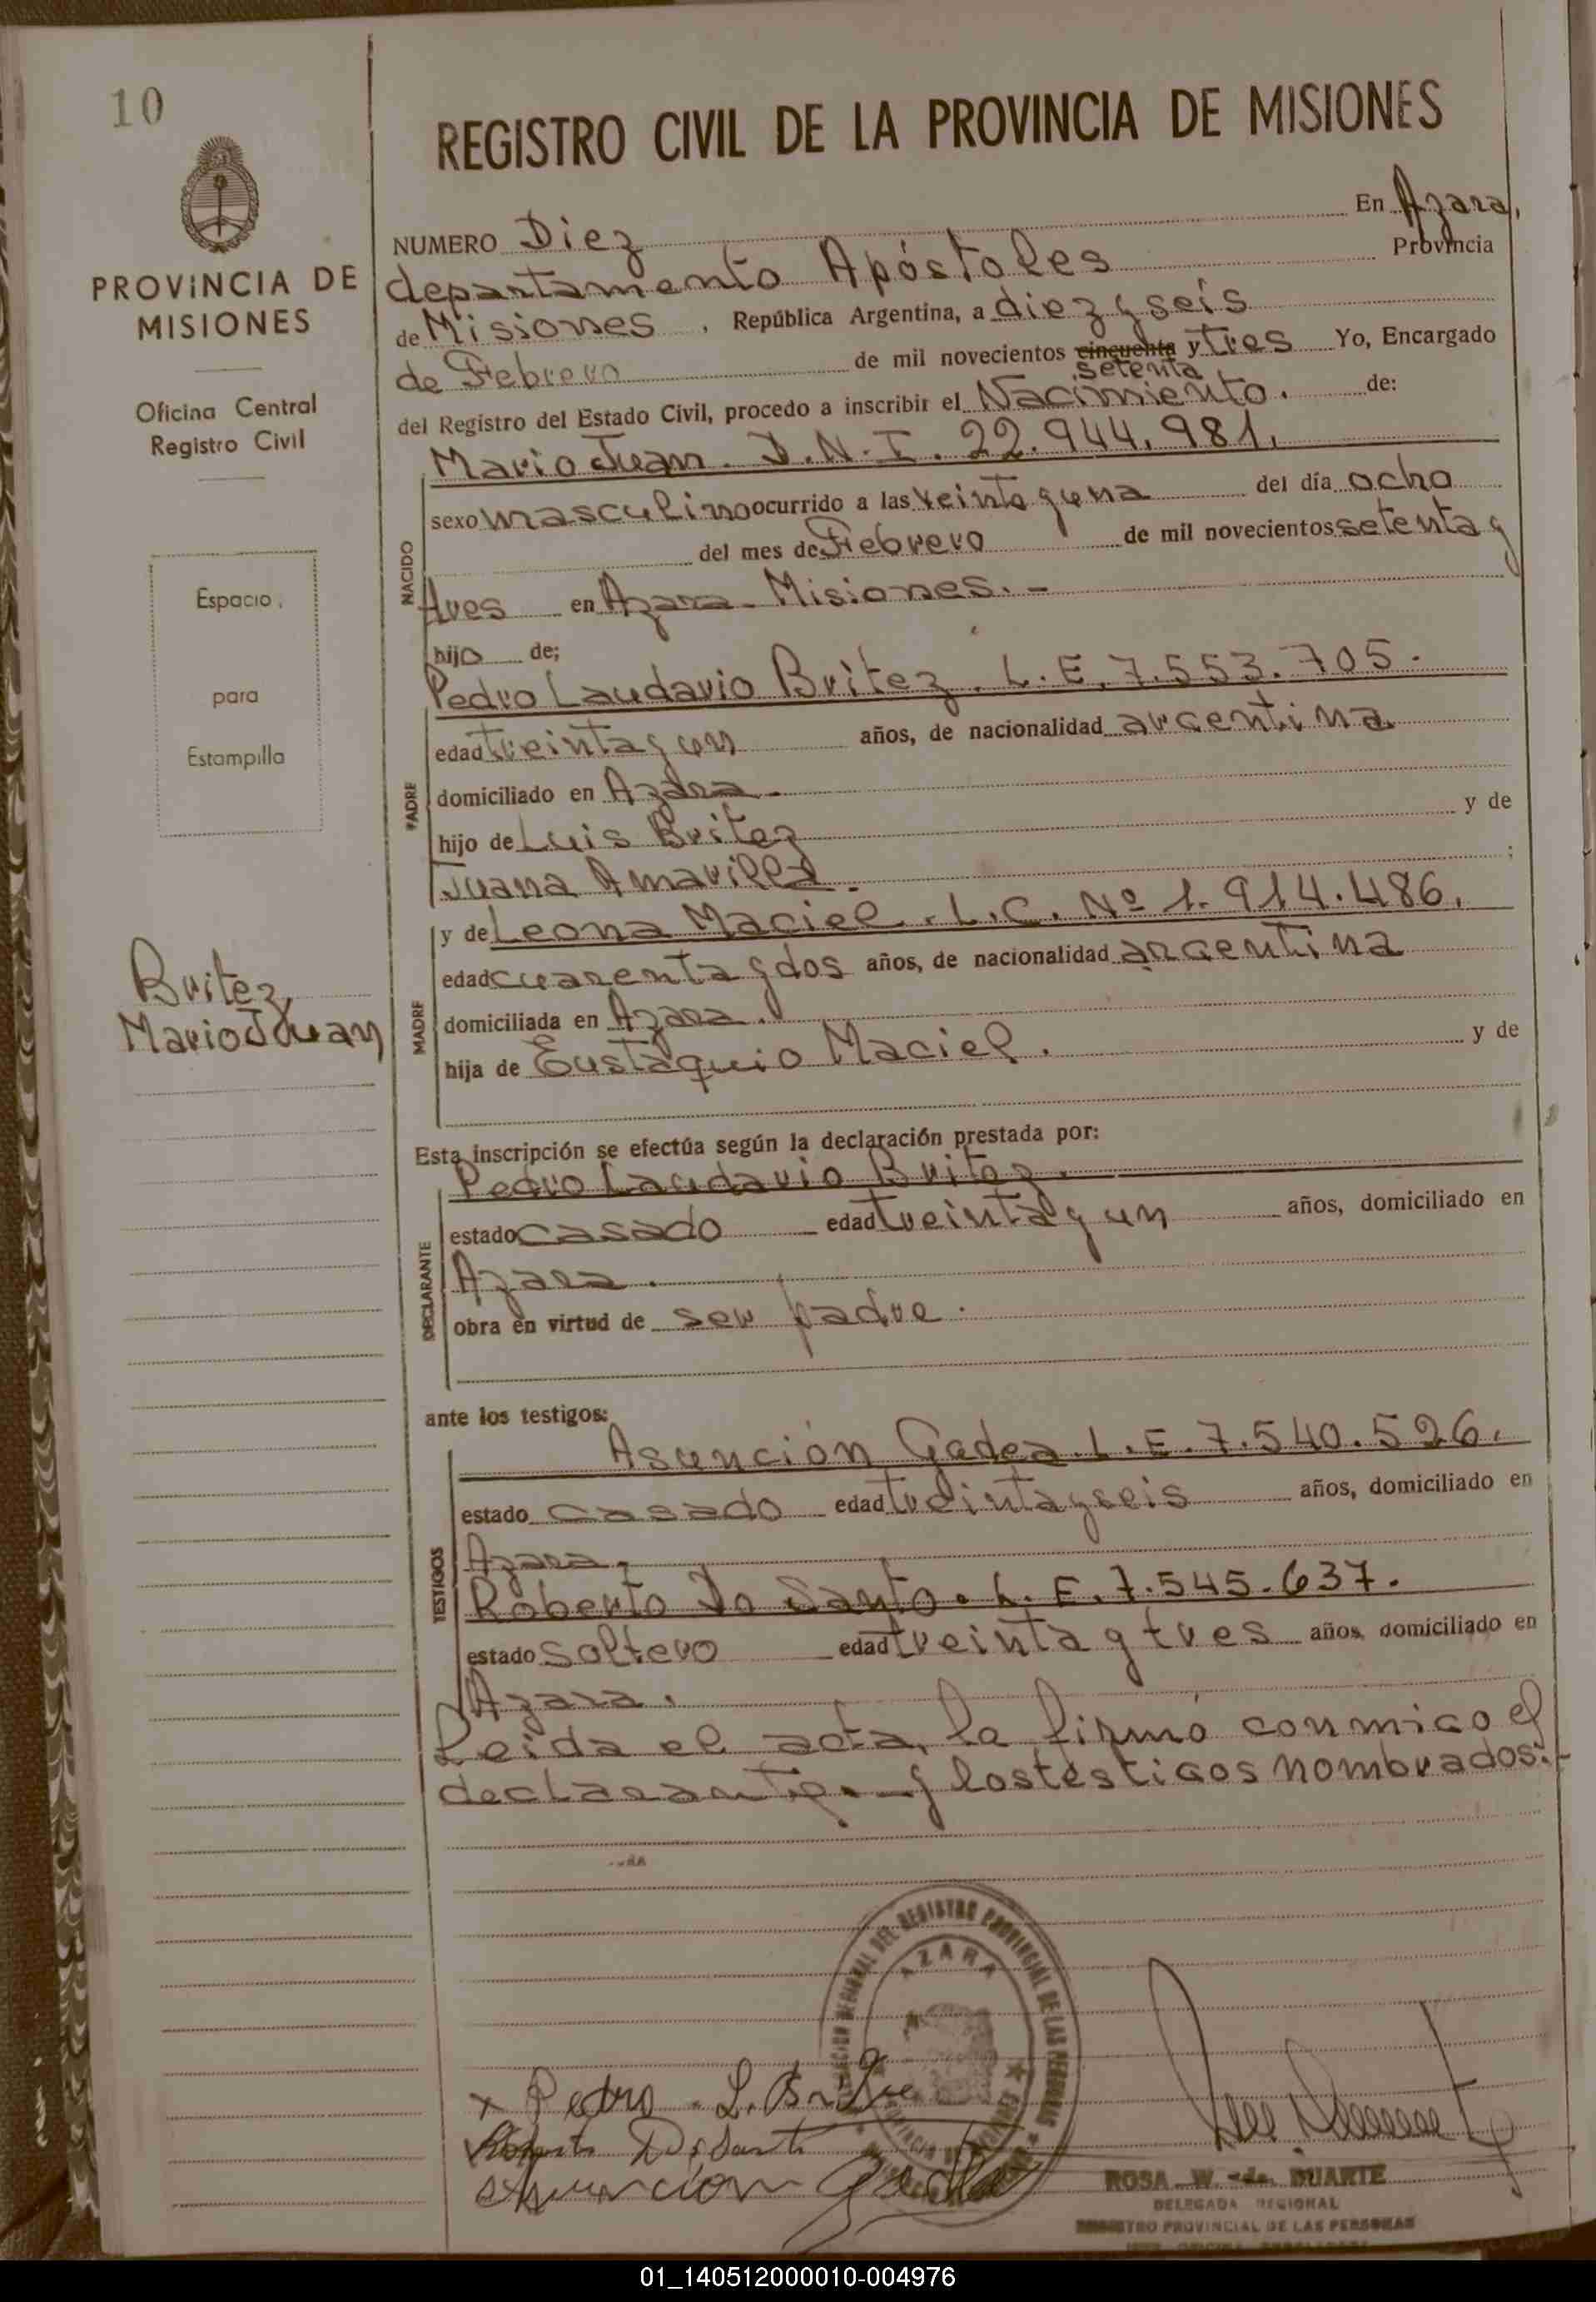 10
PROVINCIA DE
MISIONES
Oficina Central
Registro Civil
Espacio
para
Estampilla
Britez,
Mario Juan
REGISTRO CIVIL DE LA PROVINCIA DE MISIONES
NUMERO Diez En Azara,
departamento Apóstoles Provincia
de Misiones, República Argentina, a diez y seis
de Febrero de mil novecientos cincuenta y tres Yo, Encargado
setenta
del Registro del Estado Civil, procedo a inscribir el Nacimiento. de:
Mario Juan. D.N.I. 22.944.981.
NACIDO
sexo masculino ocurrido a las veinte y una del día ocho
del mes de Febrero de mil novecientos setenta y
tres en Azara - Misiones. -
hijo de;
Pedro Laudario Britez. L.E. 7.553.705.
PADRE
edad treinta y un años, de nacionalidad argentina
domiciliado en Azara.
hijo de Luis Britez y de
Juana Amarilla. ;
y de Leona Maciel. L.C. Nº 1.914.486.
MADRE
edad cuarenta y dos años, de nacionalidad argentina
domiciliada en Azara.
hija de Eustaquio Maciel. y de
Esta inscripción se efectúa según la declaración prestada por:
Pedro Laudario Britez.
DECLARANTE
estado casado edad treinta y un años, domiciliado en
Azara.
obra en virtud de ser padre.
ante los testigos:
Asunción Gadea. L.E. 7.540.526.
TESTIGOS
estado casado edad treinta y seis años, domiciliado en
Azara.
Roberto Do Santo. L.E. 7.545.637.
estado soltero edad treinta y tres años domiciliado en
Azara.
Leída el acta, la firmó conmigo el
declarante. y los testigos nombrados.-
AZARA
x Pedro. L. Britez
Roberto Do Santo
Asunción Gadea
ROSA W. de DUARTE
DELEGADA REGIONAL
REGISTRO PROVINCIAL DE LAS PERSONAS
01_140512000010-004976